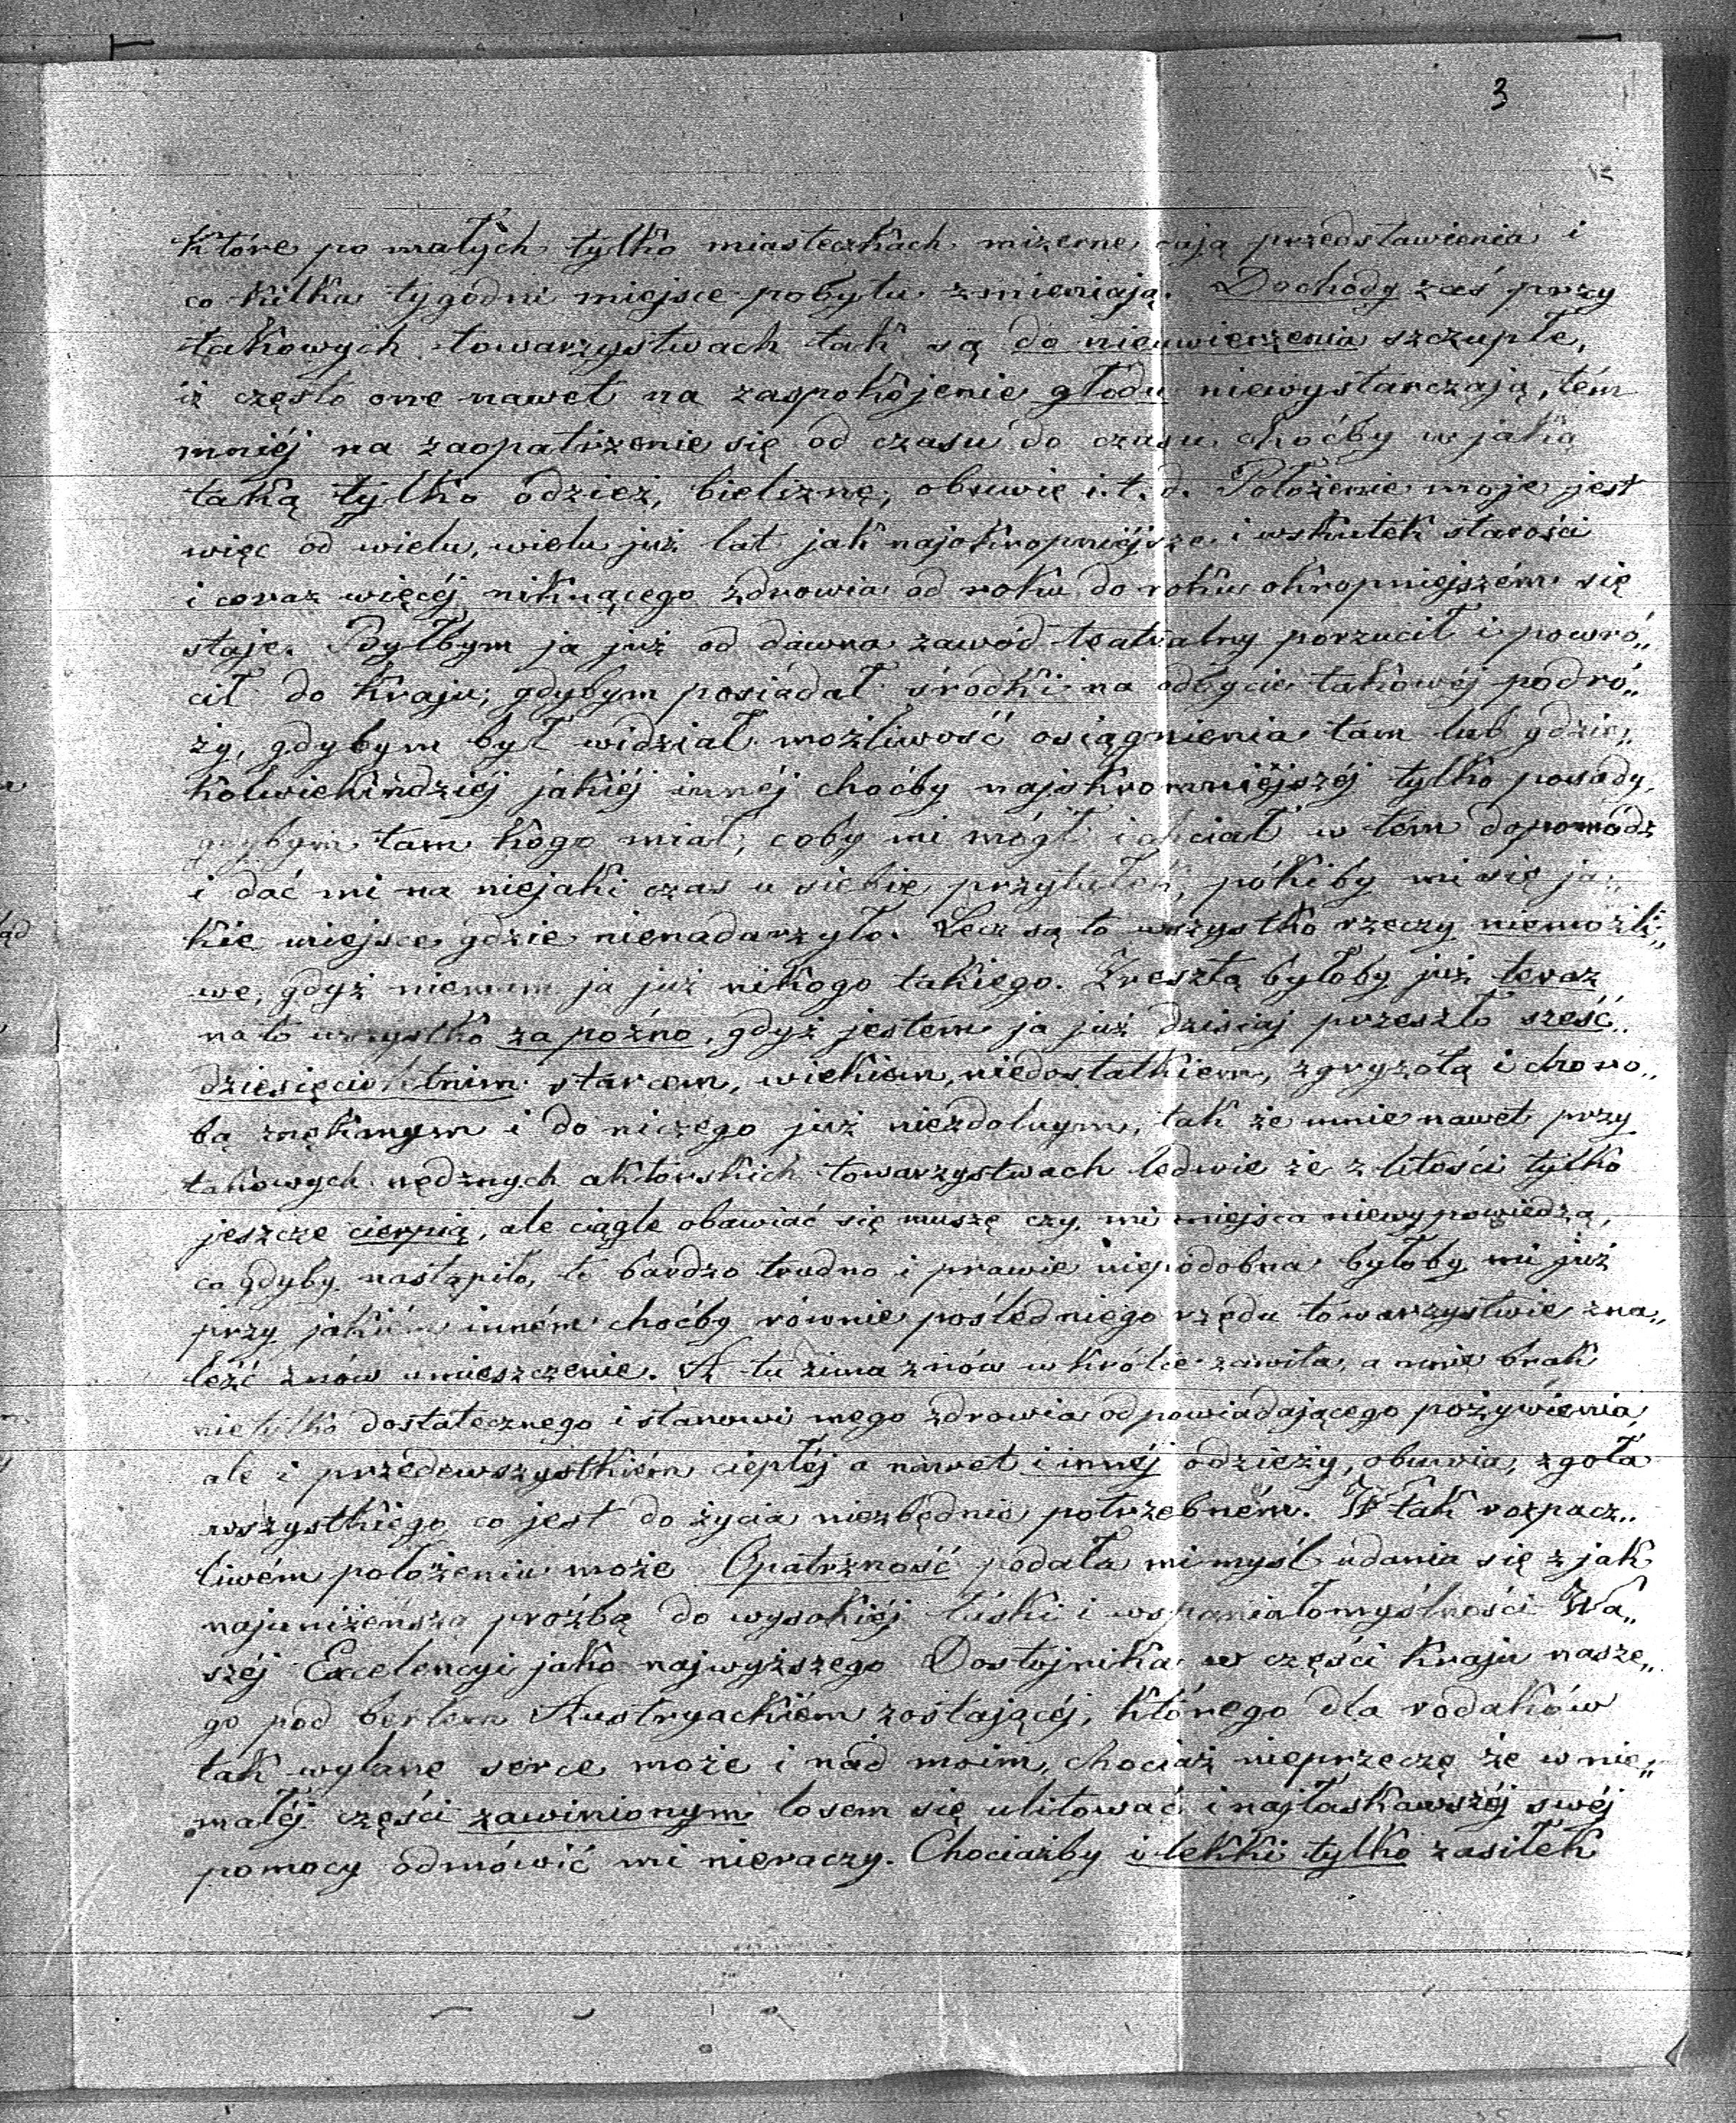 3
które po małych tylko miasteczkach mizerne dają przedstawienia i
co kilka tygodni miejsce pobytu zmieniają. Dochody zaś przy
takowych towarzystwach tak są do nieuwierzenia szczupłe,
iż często one nawet na zaspokojenie głodu niewystarczają, tém
mniéj na zaopatrzenie się od czasu do czasu choćby w jaką
taką tylko odzież, bieliznę, obuwie i.t.d. Położenie moje jest
więc od wielu, wielu już lat jak najokropniéjsze i wskutek starości
i coraz więcéj niknącego zdrowia od roku do roku okropniejszém się
staje. Byłbym ja już od dawna zawód teatralny porzucił i powró„
cił do kraju, gdybym posiadał środki na odbycie takowéj podró„
ży, gdybym był widział możliwość osiągnienia tam lub gdzie„
kolwiekindziéj jakiéj innéj choćby najskromniéjszéj tylko posady,
gdybym tam kogo miał, coby mi mógł i chciał w tém dopomódz
i dać mi na niejaki czas u siebie przytułek, pókiby mi się ja„
kie miejsce gdzie nienadarzyło. Lecz są to wszystko rzeczy niemożli„
we, gdyż niemam ja już nikogo takiego. Zresztą byłoby już teraz
na to wszystko za poźno, gdyż jestem ja już dzisiaj przeszło sześć„
dziesięcioletnim starcem, wiekiem, niedostatkiem, zgryzotą i choro„
bą znękanym i do niczego już niezdolnym, tak że mnie nawet przy
takowych nędznych aktorskich towarzystwach ledwie że z litości tylko
jeszcze cierpią, ale ciągle obawiać się muszę czy mi miejsca niewypowiedzą,
co gdyby nastąpiło, to bardzo trudno i prawie niepodobna byłoby mi już
przy jakiém inném choćby równie pośledniego rzędu towarzystwie zna„
leźć znów umieszczenie. A tu zima znów wkrótce zawita, a mnie brak
nietylko dostatecznego i stanowi mego zdrowia odpowiadającego pożywienia,
ale i przedewszystkiém ciepłéj a nawet i innéj odzieży, obuwia, zgoła
wszystkiego co jest do życia niezbędnie potrzebném. W tak rozpacz„
liwém położeniu może Opatrzność podała mi myśl udania się z jak
najuniżeńszą proźbą do wysokiéj łaski i wspaniałomyślności Wa„
széj Excelencyi jako najwyższego Dostojnika w części kraju nasze„
go pod berłem Austryackiém zostającéj, którego dla rodaków
tak wylane serce może i nad moim, chociaż nieprzeczę że w nie„
małéj części zawinionym losem się ulitować i najłaskawszéj swéj
pomocy odmówić mi nieraczy. Chociażby i lekki tylko zasiłek